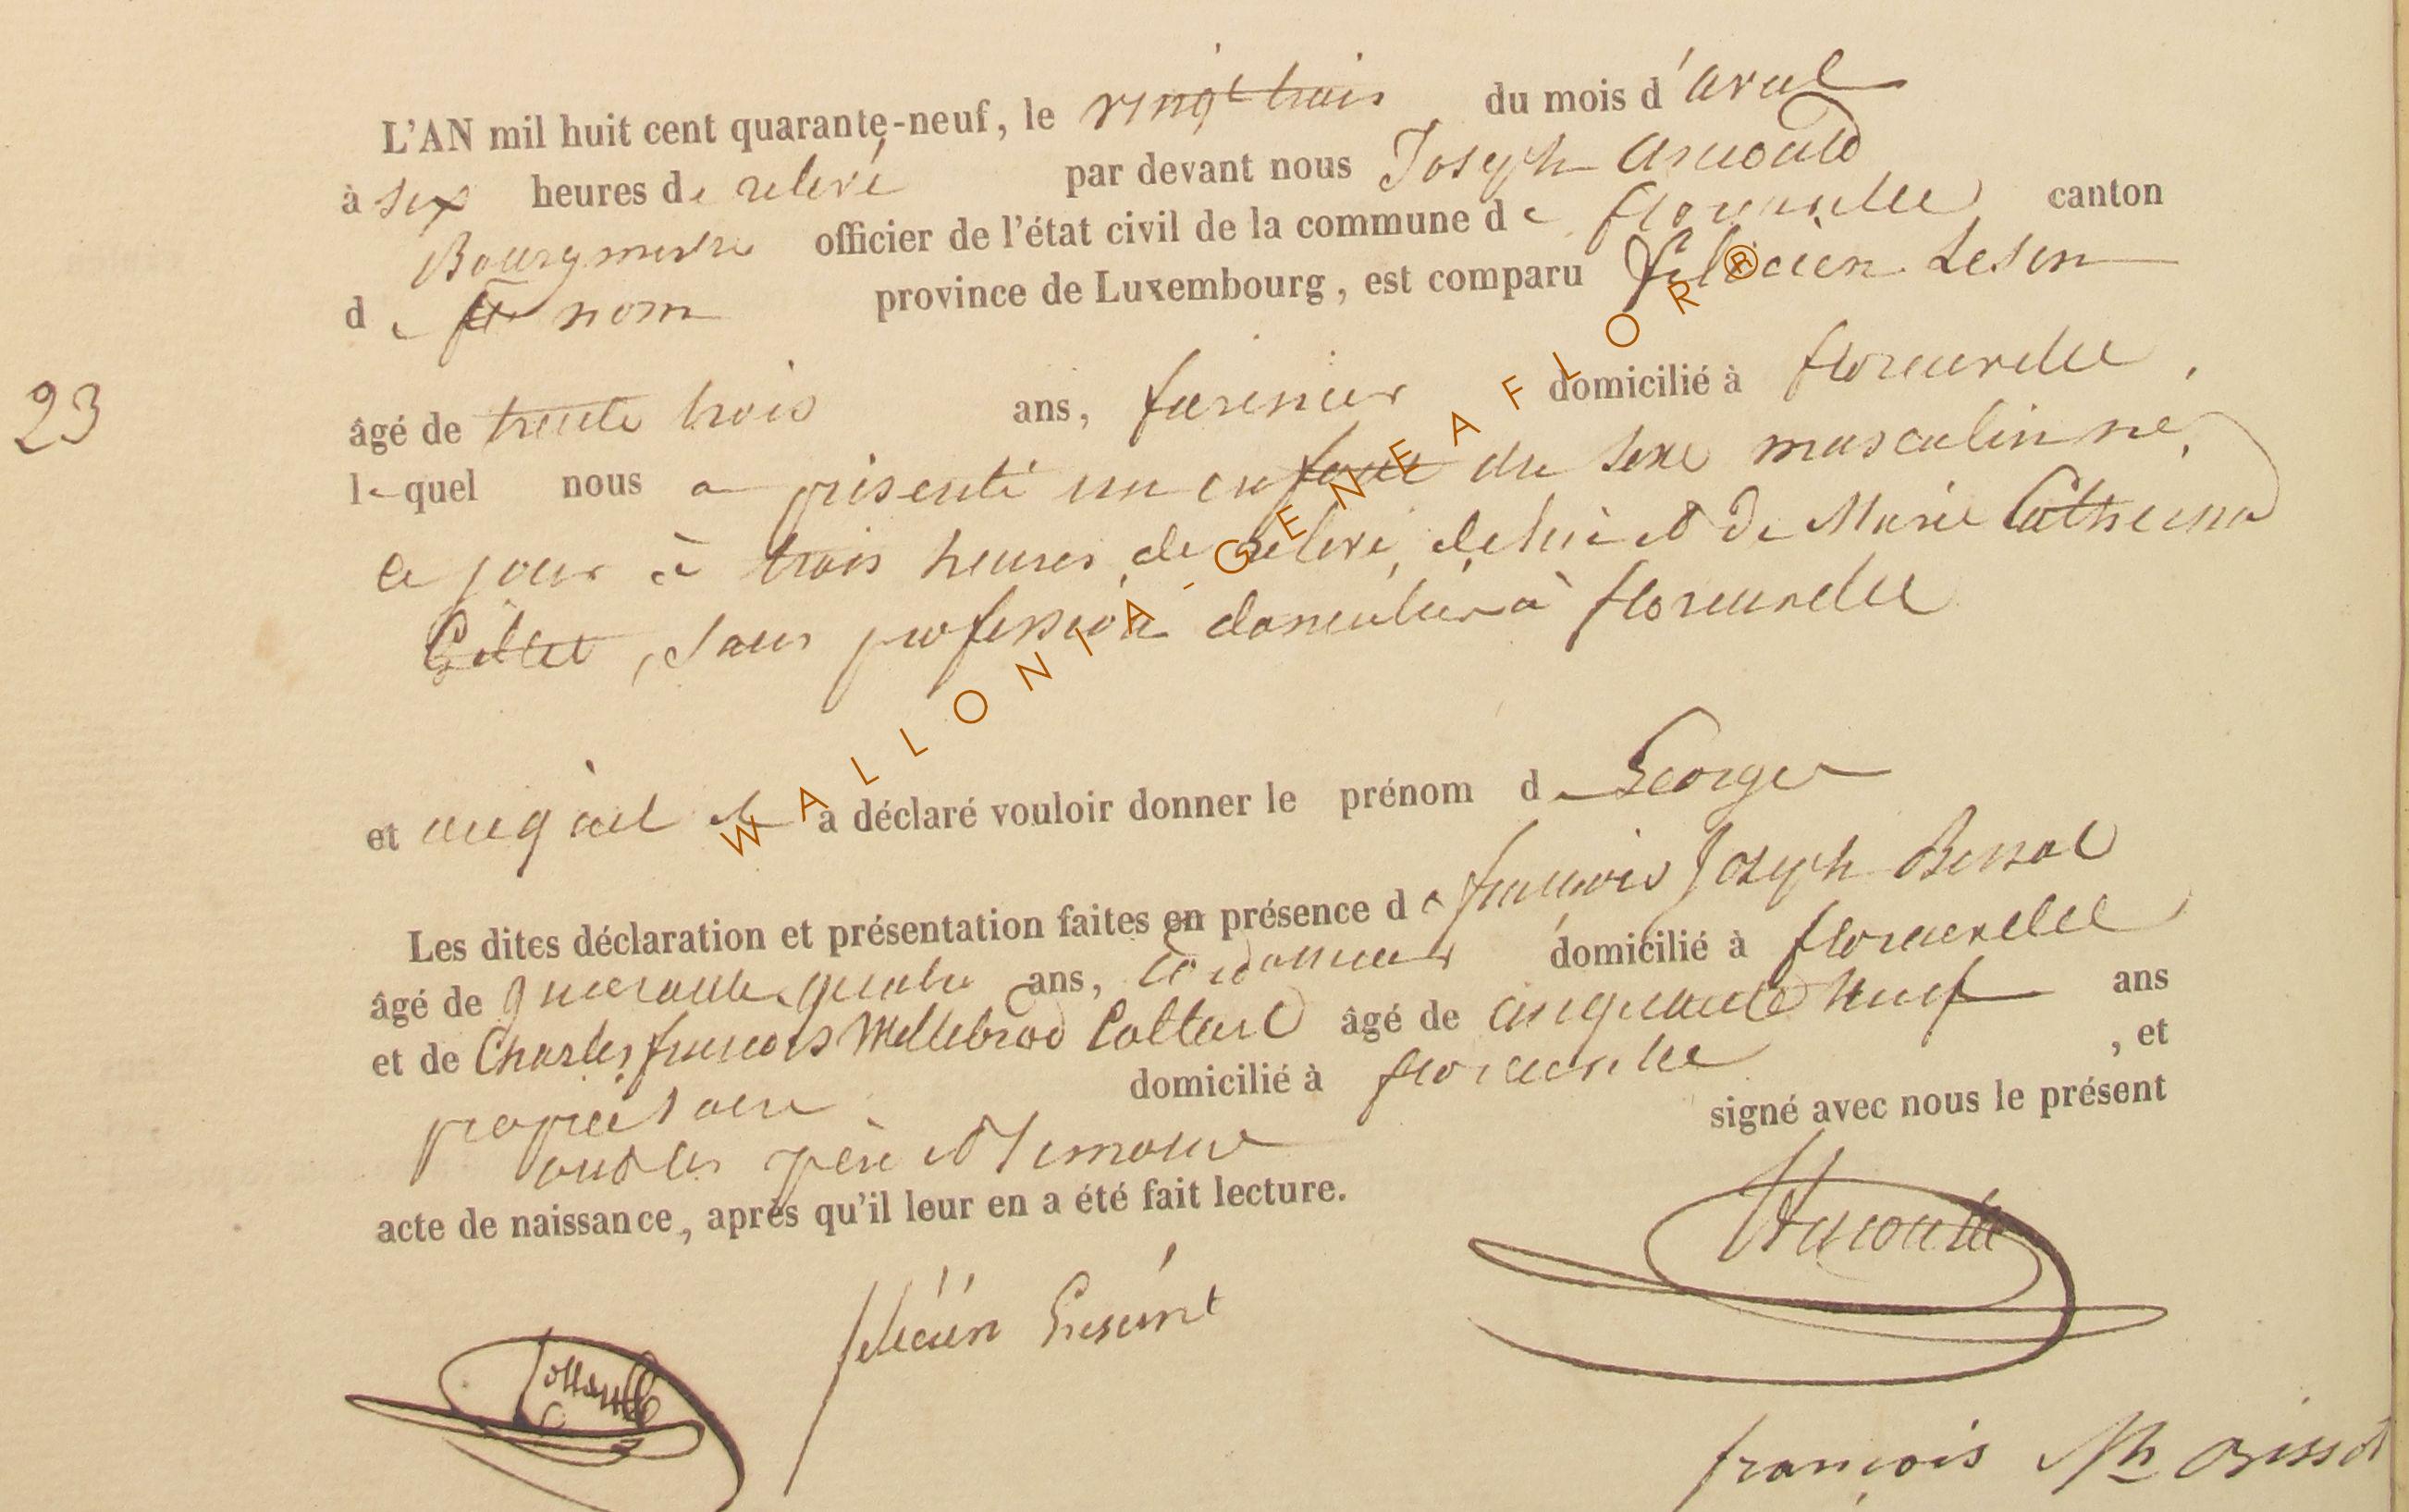 L'AN mil huit cent quarante-neuf, le vingt trois du mois d'avril
à six heures de relevé par devant nous Joseph Arnould
Bourgmestre officier de l'état civil de la commune de florenville canton
de ce nom province de Luxembourg, est comparu félicien
âgé de trente trois ans, farinier domicilié à florenville,
23
lequel nous a présenté un enfant du sexe masculin né,
ce jour à trois heures de relevé, de lui et de Marie Catherine
Gillet, sans profession domicilié à florenville
et auquel il a déclaré vouloir donner le prénom de George
Les dites déclaration et présentation faites en présence de françois Joseph
âgé de quarante quatre ans, cordonnier domicilié à florenville
et de Charles françois Willebrod âgé de cinquante neuf ans
propriétaire domicilié à florenville, et
ont les père et témoins signé avec nous le présent
acte de naissance, après qu'il leur en a été fait lecture.
Arnould
félicien
françois
WALLONIA-GENEAFLOR®